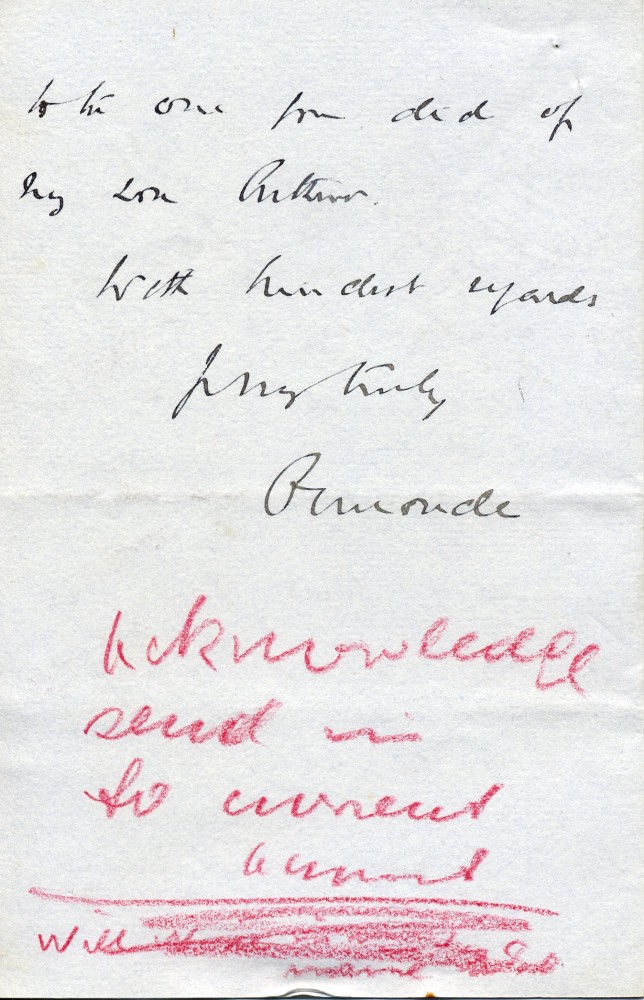 to the one you did of
my son Arthur.
With kindest regards
Yrs very truly
Ormonde
Acknowledge
send in
to current
account
Will